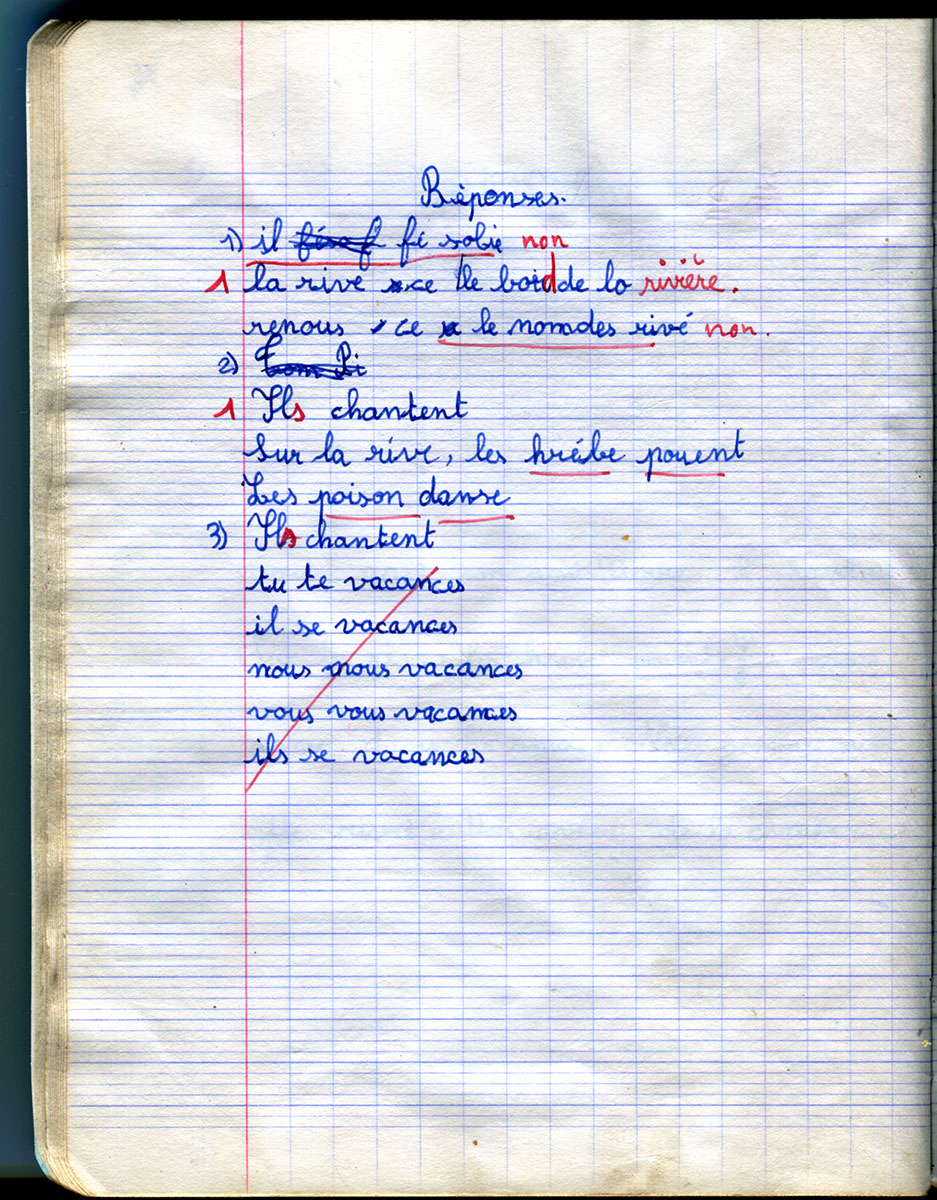 Réponses.
1) il fi solie non
1 la rive ce le bord de la rivière.
renous ce le nomades rivé non.
2)
1 Ils chantent
Sur la rive, les hrébe pouent
Les poison danse
3) Ils chantent
tu te vacances
il se vacances
nous nous vacances
vous vous vacances
ils se vacances